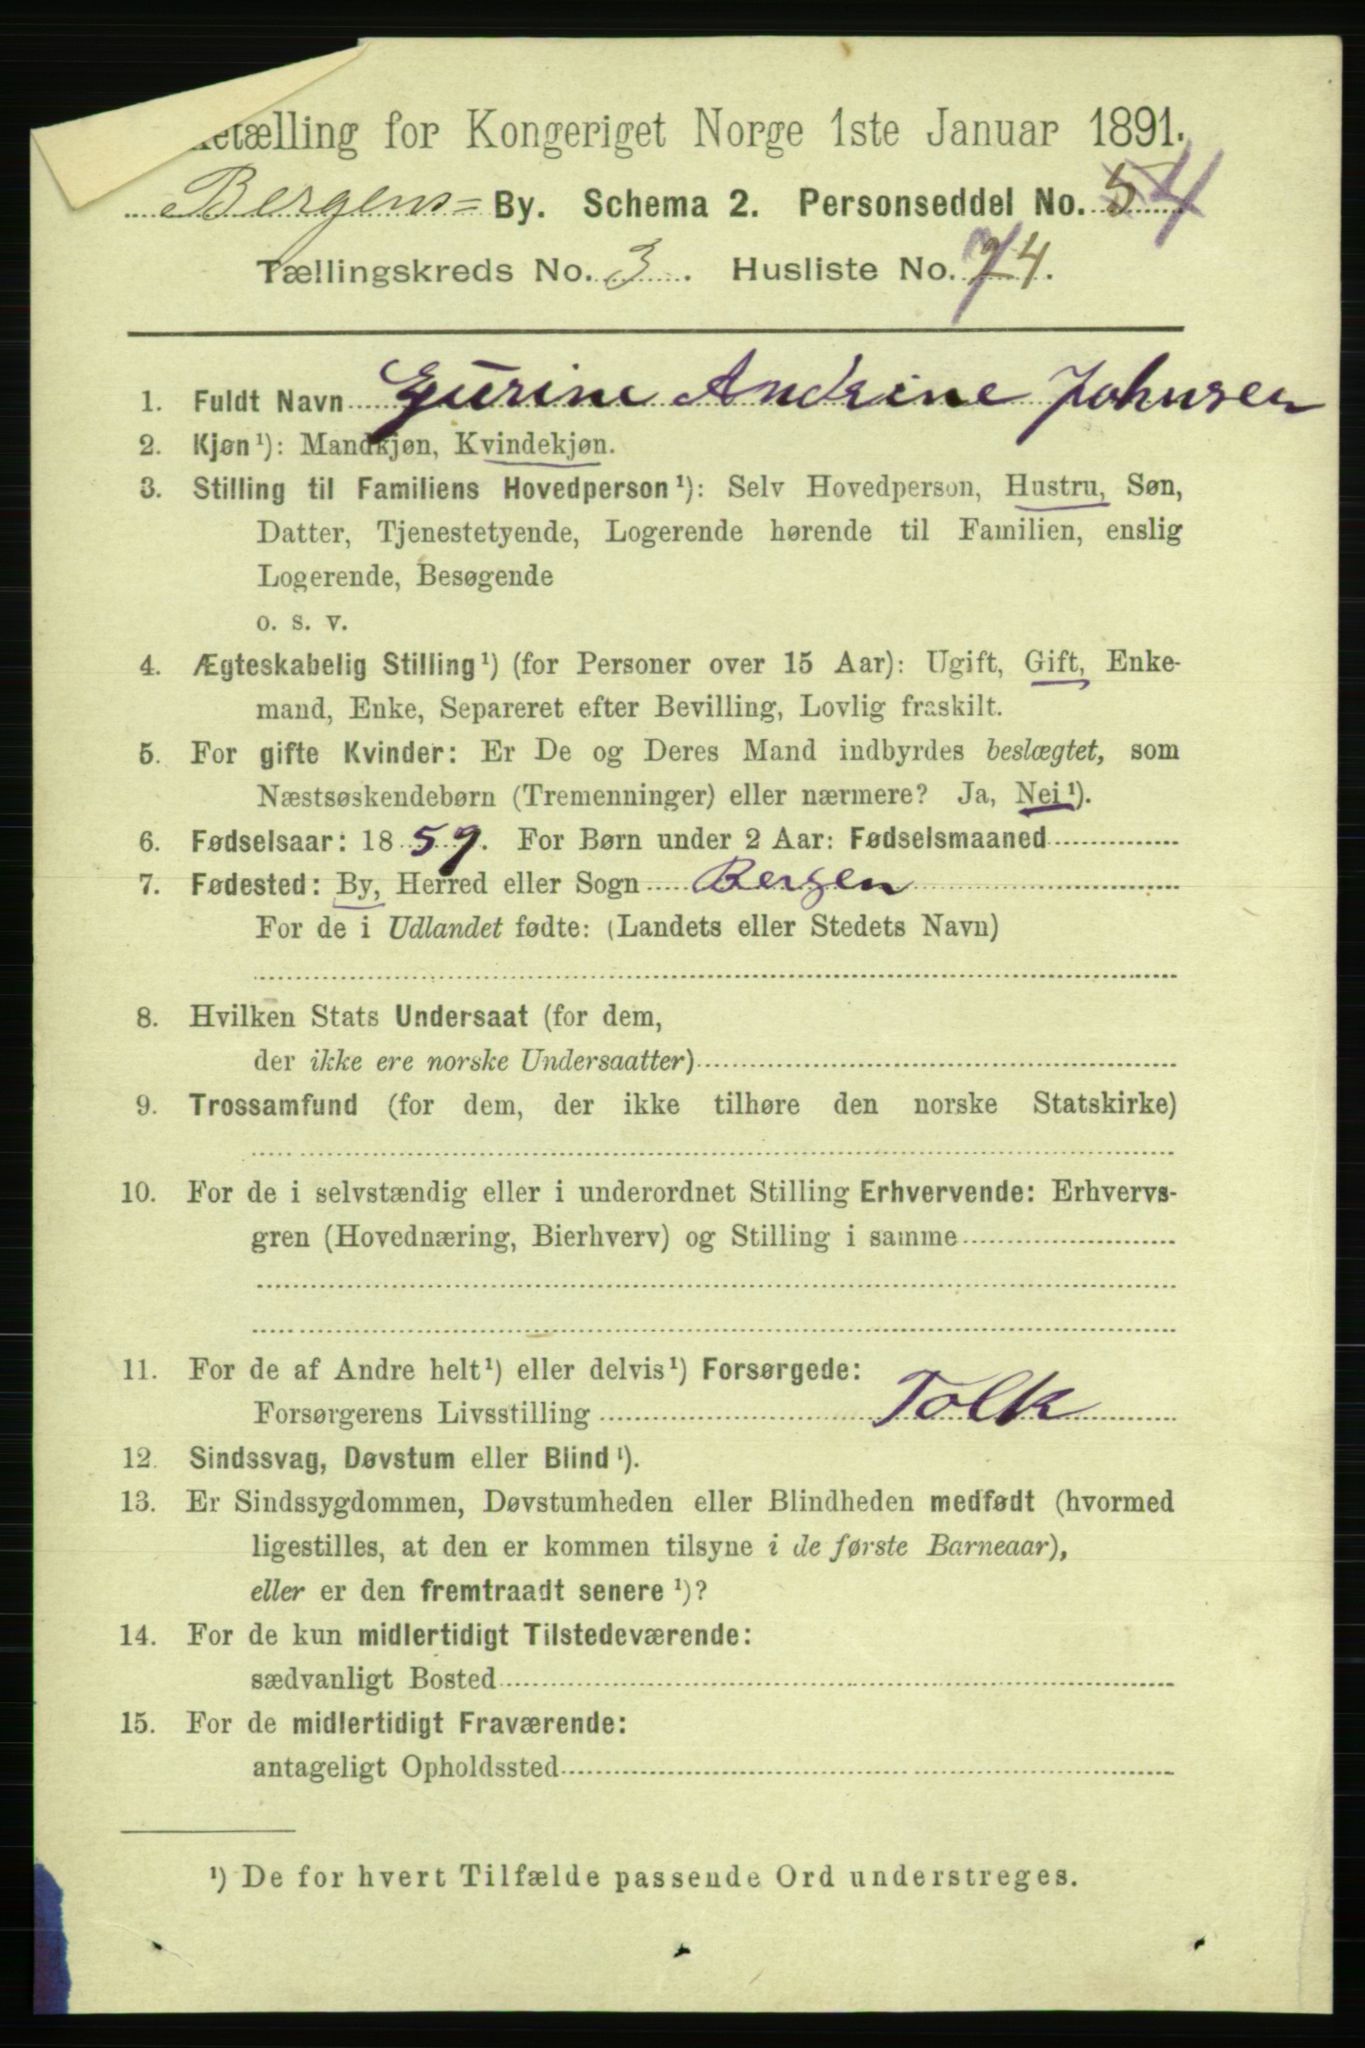 etælling for Kongeriget Norge 1ste Januar 1891.
Bergens By. Schema 2. Personseddel No. 4
Tællingskreds No. 3. Husliste No. 74.
1. Fuldt Navn Gurine Andrine Johnsen
2. Kjøn¹): Mandkjøn, Kvindekjøn.
3. Stilling til Familiens Hovedperson¹): Selv Hovedperson, Hustru, Søn,
Datter, Tjenestetyende, Logerende hørende til Familien, enslig
Logerende, Besøgende
o. s. v.
4. Ægteskabelig Stilling¹) (for Personer over 15 Aar): Ugift, Gift, Enke-
mand, Enke, Separeret efter Bevilling, Lovlig fraskilt.
5. For gifte Kvinder: Er De og Deres Mand indbyrdes beslægtet, som
Næstsøskendebørn (Tremenninger) eller nærmere? Ja, Nei¹).
6. Fødselsaar: 1859. For Børn under 2 Aar: Fødselsmaaned
7. Fødested: By, Herred eller Sogn Bergen
For de i Udlandet fødte: (Landets eller Stedets Navn)
8. Hvilken Stats Undersaat (for dem,
der ikke ere norske Undersaatter)
9. Trossamfund (for dem, der ikke tilhøre den norske Statskirke)
10. For de i selvstændig eller i underordnet Stilling Erhvervende: Erhvervs-
gren (Hovednæring, Bierhverv) og Stilling i samme
11. For de af Andre helt¹) eller delvis¹) Forsørgede:
Forsørgerens Livsstilling Tolk
12. Sindssvag, Døvstum eller Blind¹).
13. Er Sindssygdommen, Døvstumheden eller Blindheden medfødt (hvormed
ligestilles, at den er kommen tilsyne i de første Barneaar),
eller er den fremtraadt senere¹)?
14. For de kun midlertidigt Tilstedeværende:
sædvanligt Bosted
15. For de midlertidigt Fraværende:
antageligt Opholdssted
¹) De for hvert Tilfælde passende Ord understreges.